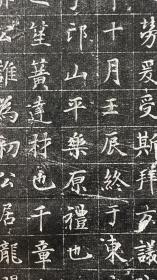 爰受斯拜方議
十月壬辰終于東
于邙山平樂原禮也
笙簧達材也千章
為初公居龍